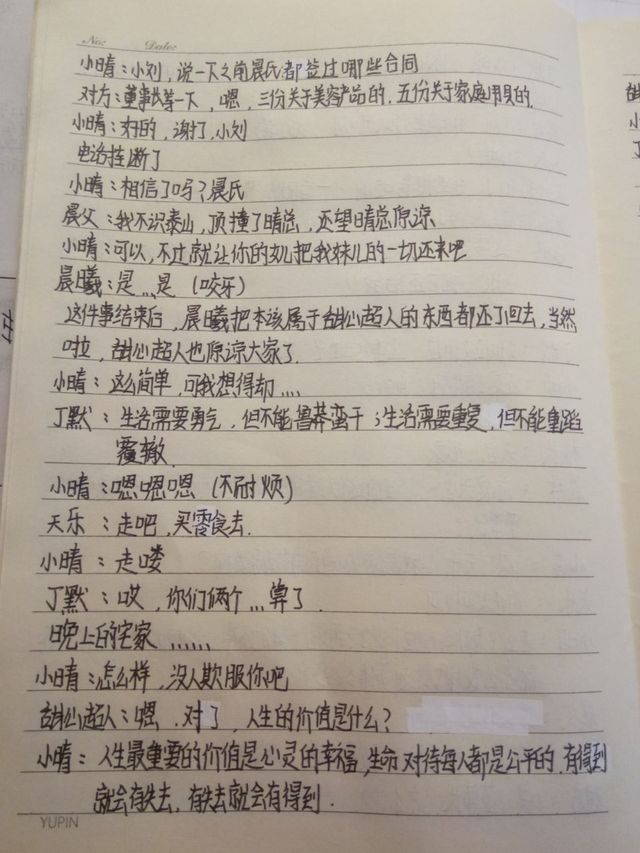 No:   Date:
小晴：小刘，说一下之前晨氏都签过哪些合同
对方：董事长等一下，嗯，三份关于美容产品的，五份关于家庭用具的.
小晴：好的，谢了，小刘
电话挂断了
小晴：相信了吗？晨氏
晨父：我不识泰山，顶撞了晴总，还望晴总原谅
小晴：可以，不过就让你的女儿把我妹儿的一切还来吧
晨曦：是...是（咬牙）
这件事结束后，晨曦把本该属于甜心超人的东西都还了回去，当然
啦，甜心超人也原谅大家了.
小晴：这么简单，可我想得却....
丁默：生活需要勇气，但不能鲁莽蛮干；生活需要重复，但不能重蹈
覆辙.
小晴：嗯嗯嗯（不耐烦）
天乐：走吧，买零食去.
小晴：走喽
丁默：哎，你们俩个...算了.
晚上的宅家......
小晴：怎么样，没人欺服你吧
甜心超人：嗯.对了，人生的价值是什么？
小晴：人生最重要的价值是心灵的幸福，生命对待每人都是公平的.有得到
就会有失去，有失去就会有得到.
YUPIN